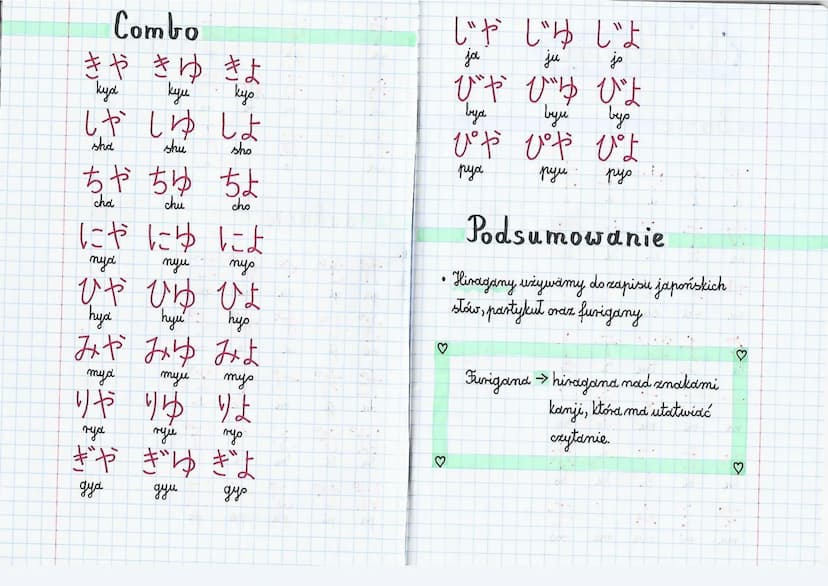 Combo
きゃ きゅ きょ
kya kyu kyo
しゃ しゅ しょ
sha shu sho
ちゃ ちゅ ちょ
cha chu cho
にゃ にゅ にょ
nya nyu nyo
ひゃ ひゅ ひょ
hya hyu hyo
みゃ みゅ みょ
mya myu myo
りゃ りゅ りょ
rya ryu ryo
ぎゃ ぎゅ ぎょ
gya gyu gyo
じゃ じゅ じょ
ja ju jo
びゃ びゅ びょ
bya byu byo
ぴゃ ぴゃ ぴょ
pya pyu pyo
Podsumowanie
• Hiragany używamy do zapisu japońskich
słów, partykuł oraz furigany
Furigana → hiragana nad znakami
kanji, która ma ułatwiać
czytanie.